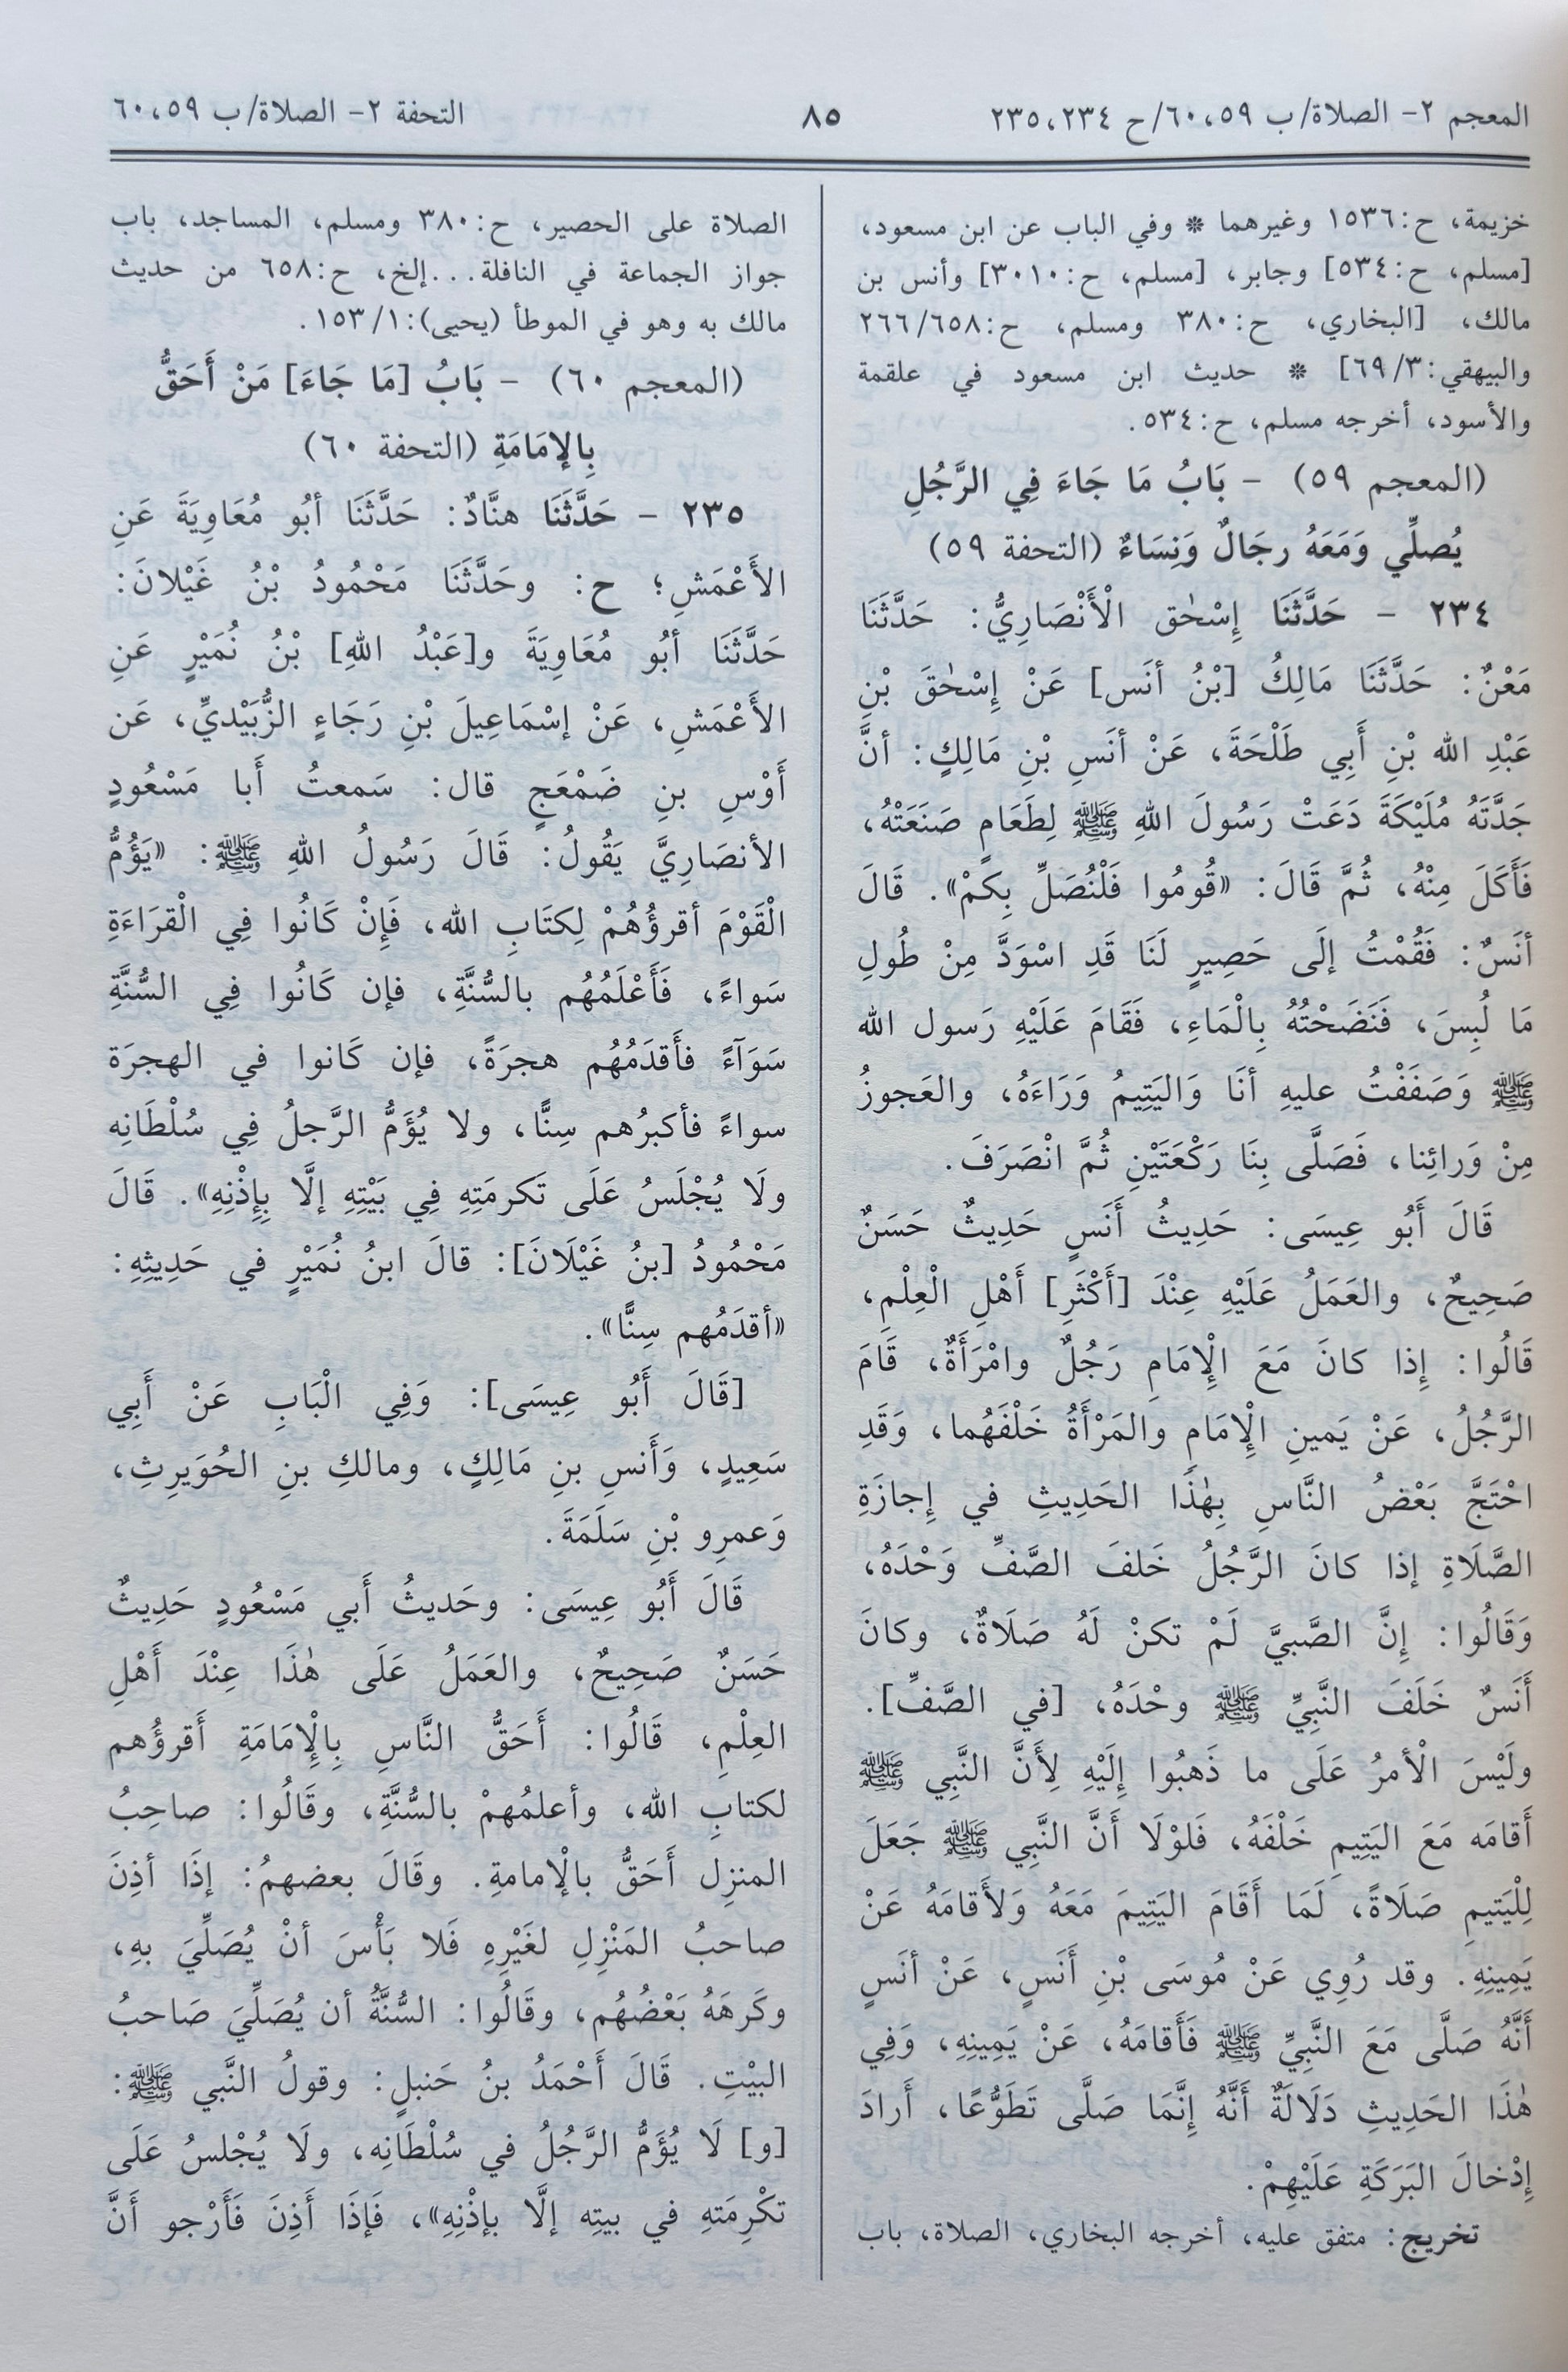 المعجم ٢- الصلاة/ ب ٥٩، ٦٠/ ح ٢٣٤، ٢٣٥
٨٥
التحفة ٢- الصلاة/ ب ٥٩، ٦٠
خزيمة، ح: ١٥٣٦ وغيرهما * وفي الباب عن ابن مسعود،
[مسلم، ح: ٥٣٤] وجابر، [مسلم، ح: ٣٠١٠] وأنس بن
مالك، [البخاري، ح: ٣٨٠ ومسلم، ح: ٦٥٨/ ٢٦٦
والبيهقي: ٣/ ٦٩] * حديث ابن مسعود في علقمة
والأسود، أخرجه مسلم، ح: ٥٣٤.
(المعجم ٥٩) - بَابُ مَا جَاءَ فِي الرَّجُلِ
يُصلِّي وَمَعَهُ رِجَالٌ وَنِسَاءٌ (التحفة ٥٩)
٢٣٤ - حَدَّثَنَا إِسْحٰق الْأَنْصَارِيُّ: حَدَّثَنَا
مَعْنٌ: حَدَّثَنَا مَالِكُ [بْنُ أنَس] عَنْ إِسْحٰقَ بْنِ
عَبْدِ الله بْنِ أَبِي طَلْحَةَ، عَنْ أنَسِ بْنِ مَالِكٍ: أنَّ
جَدَّتَهُ مُلَيْكَةَ دَعَتْ رَسُولَ اللهِ ﷺ لِطَعَامٍ صَنَعَتْهُ،
فَأَكَلَ مِنْهُ، ثُمَّ قَالَ: «قُومُوا فَلْنُصَلِّ بِكمْ». قَالَ
أنَسٌ: فَقُمْتُ إلَى حَصِيرٍ لَنَا قَدِ اسْوَدَّ مِنْ طُولِ
مَا لُبِسَ، فَنَضَحْتُهُ بِالْمَاءِ، فَقَامَ عَلَيْهِ رَسول الله
ﷺ وَصَفَفْتُ عليهِ أنَا وَاليَتِيمُ وَرَاءَهُ، والعَجوزُ
مِنْ وَرائِنا، فَصَلَّى بِنَا رَكْعَتَيْنِ ثُمَّ انْصَرَفَ.
قَالَ أَبُو عِيسَى: حَدِيثُ أَنَسٍ حَدِيثٌ حَسَنٌ
صَحِيحٌ، والعَمَلُ عَلَيْهِ عِنْدَ [أَكْثَرِ] أَهْلِ الْعِلْمِ،
قَالُوا: إِذا كانَ مَعَ الْإِمَامِ رَجُلٌ وامْرَأَةٌ، قَامَ
الرَّجُلُ، عَنْ يَمينِ الْإِمَامِ والمَرْأَةُ خَلْفَهُما، وَقَدِ
احْتَجَّ بَعْضُ النَّاسِ بِهٰذَا الحَدِيثِ في إِجازَةِ
الصَّلَاةِ إذا كانَ الرَّجُلُ خَلفَ الصَّفِّ وَحْدَهُ،
وَقَالُوا: إِنَّ الصَّبيَّ لَمْ تكنْ لَهُ صَلَاةٌ، وكانَ
أَنَسٌ خَلَفَ النَّبِيِّ ﷺ وحْدَهُ، [في الصَّفِّ].
ولَيْسَ الْأمرُ عَلَى ما ذَهبُوا إِلَيْهِ لِأَنَّ النَّبِي ﷺ
أَقامَه مَعَ اليَتِيمِ خَلْفَهُ، فَلوْلَا أَنَّ النَّبِي ﷺ جَعَلَ
لِلْيَتيمِ صَلَاةً، لَمَا أَقَامَ اليَتِيمَ مَعَهُ وَلأَقامَهُ عَنْ
يَمِينِهِ. وقد رُوِي عَنْ مُوسَى بْنِ أَنَسٍ، عَنْ أنَسٍ
أَنَّهُ صَلَّى مَعَ النَّبِيِّ ﷺ فَأَقامَهُ، عَنْ يَمِينِهِ، وَفِي
هٰذَا الحَدِيثِ دَلَالَةٌ أَنَّهُ إِنَّمَا صَلَّى تَطَوُّعًا، أَرادَ
إِدْخالَ البَرَكَةِ عَلَيْهِمْ.
تخريج: متفق عليه، أخرجه البخاري، الصلاة، باب
الصلاة على الحصير، ح: ٣٨٠ ومسلم، المساجد، باب
جواز الجماعة في النافلة...إلخ، ح: ٦٥٨ من حديث
مالك به وهو في الموطأ (يحيى): ١/ ١٥٣.
(المعجم ٦٠) - بَابُ [مَا جَاءَ] مَنْ أَحَقُّ
بِالإمَامَةِ (التحفة ٦٠)
٢٣٥ - حَدَّثَنَا هنَّادٌ: حَدَّثَنَا أبُو مُعَاوِيَةَ عَنِ
الأَعْمَشِ؛ ح: وحَدَّثَنَا مَحْمُودُ بْنُ غَيْلانَ:
حَدَّثَنَا أبُو مُعَاوِيَةَ و[عَبْدُ اللهِ] بْنُ نُمَيْرٍ عَنِ
الأَعْمَشِ، عَنْ إسْمَاعِيلَ بْنِ رَجَاءٍ الزُّبَيْديِّ، عَن
أَوْسِ بنِ ضَمْعَجٍ قال: سَمعتُ أَبا مَسْعُودٍ
الأنصَارِيَّ يَقُولُ: قَالَ رَسُولُ اللهِ ﷺ: «يَؤُمُّ
الْقَوْمَ أقرؤُهُمْ لِكتَابِ الله، فَإِنْ كَانُوا فِي الْقرَاءَةِ
سَواءً، فَأَعْلَمُهُم بالسُّنَّةِ، فإن كَانُوا فِي السُّنَّةِ
سَوَآءً فأَقدَمُهُم هجرَةً، فإن كَانوا في الهجرَة
سواءً فأكبرُهم سِنًّا، ولا يُؤَمُّ الرَّجلُ فِي سُلْطَانِه
ولَا يُجْلَسُ عَلَى تَكرمَتِهِ فِي بَيْتِهِ إلَّا بِإِذْنِهِ». قَالَ
مَحْمُودُ [بنُ غَيْلَانَ]: قالَ ابنُ نُمَيْرٍ في حَدِيثِهِ:
«أقدَمُهم سِنًّا».
[قَالَ أَبُو عِيسَى]: وَفِي الْبَابِ عَنْ أَبِي
سَعِيدٍ، وَأَنسِ بنِ مَالِكٍ، ومالكِ بنِ الحُوَيرِثِ،
وَعمرِو بْنِ سَلَمَةَ.
قَالَ أَبُو عِيسَى: وحَديثُ أَبي مَسْعُودٍ حَدِيثٌ
حَسَنٌ صَحِيحٌ، والعَمَلُ عَلَى هٰذَا عِنْدَ أَهْلِ
العِلْمِ، قَالُوا: أَحَقُّ النَّاسِ بِالْإِمَامَةِ أَقرؤُهم
لكتابِ الله، وأعلمُهمْ بالسُّنَّةِ، وقَالُوا: صاحِبُ
المنزِل أَحَقُّ بالْإمامةِ. وقَالَ بعضهمُ: إذَا أذِنَ
صاحبُ المَنْزِلِ لغَيْرِهِ فَلا بَأْسَ أنْ يُصَلِّيَ بهِ،
وكَرهَهُ بَعْضُهُم، وقَالُوا: السُّنَّةُ أن يُصَلِّيَ صَاحبُ
البيْتِ. قَالَ أَحْمَدُ بنُ حَنبلٍ: وقولُ النَّبي ﷺ:
[و] لَا يُؤَمُّ الرَّجُلُ في سُلْطَانِه، ولَا يُجْلسُ عَلَى
تكْرِمَتهِ في بيتِه إلَّا بإذْنِهِ»، فَإذَا أَذِنَ فَأَرْجو أَنَّ